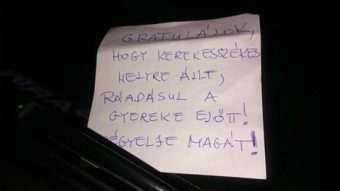 GRATULÁLOK,
HOGY KEREKESSZÉKES
HELYRE ÁLLT,
RÁADÁSUL A
GYEREKE ELŐTT!
SZÉGYELJE MAGÁT!